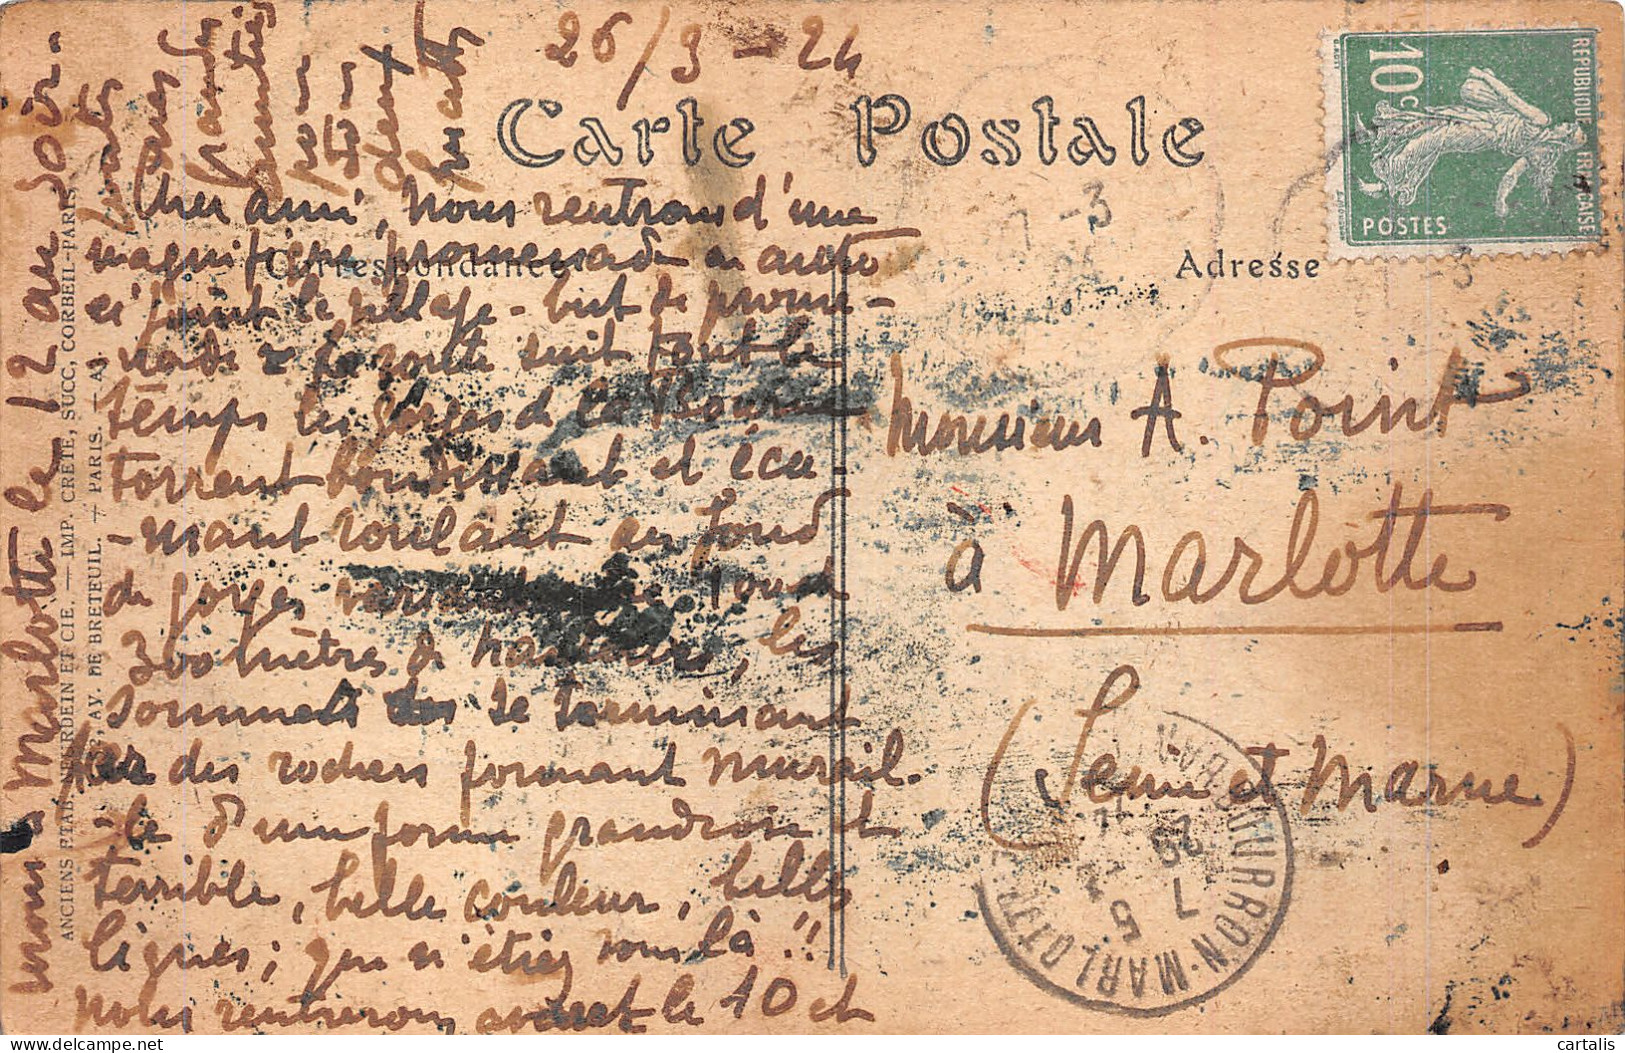 26/3-24
Carte Postale
Correspondance
Adresse
RÉPUBLIQUE FRANÇAISE
10c
POSTES
Cher ami, nous rentrons d'une
magnifique promenade en auto
ci joint le village - but de prome-
nade - la route suit tout le
temps les gorges de la Bourne
torrent bondissant et écu-
-mant roulant au fond
de gorges
300 mètres de hauteurs, les
sommets se terminant
par des rochers formant murail-
-le d'une forme grandiose et
terrible, belle couleur, belles
lignes; que n'étiez vous là!!
nous rentrerons avant le 10 et
serons à Marlotte le 12 au soir..
amitiés
pour
deux
Monsieur A. Point
à Marlotte
(Seine et Marne)
BOURRON-MARLOTTE
ANCIENS ETAB. NEURDEIN ET CIE. — IMP. CRÉTÉ, SUCC, CORBEIL-PARIS
AV. DE BRETEUIL. — PARIS. —
cartalis